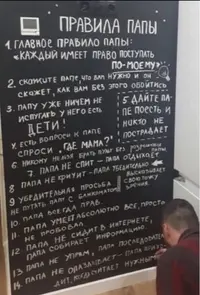 ПРАВИЛА ПАПЫ
1. ГЛАВНОЕ ПРАВИЛО ПАПЫ:
«КАЖДЫЙ ИМЕЕТ ПРАВО ПОСТУПАТЬ
ПО-МОЕМУ»
2. СКАЖИТЕ ПАПЕ, ЧТО ВАМ НУЖНО И ОН
СКАЖЕТ, КАК ВАМ БЕЗ ЭТОГО ОБОЙТИСЬ
3. ПАПУ УЖЕ НИЧЕМ НЕ
ИСПУГАТЬ У НЕГО ЕСТЬ
ДЕТИ!
4. ЕСТЬ ВОПРОСЫ К ПАПЕ
СПРОСИ, "ГДЕ МАМА?"
5 ДАЙТЕ ПА-
ПЕ ПОЕСТЬ И
НИКТО НЕ
ПОСТРАДАЕТ
6 НИКОМУ НЕ
7 ПАПА НЕ СПИТ - ПАПА ОТДЫХАЕТ
8 ПАПА НЕ КРИЧИТ - ПАПА УБЕДИТЕЛЬНО
ВЫСКАЗЫВАЕТ
СВОЮ ТОЧКУ
ЗРЕНИЯ
9 УБЕДИТЕЛЬНАЯ ПРОСЬБА
НЕ
10 ПАПА ВСЕГДА ПРАВ.
11 ПАПА УМЕЕТ АБСОЛЮТНО ВСЕ, ПРОСТО
НЕ ПРОБОВАЛ
12 ПАПА НЕ СИДИТ В ИНТЕРНЕТЕ,
ПАПА СОБИРАЕТ ИНФОРМАЦИЮ.
13 ПАПА НЕ УПРЯМ, ПАПА ПОСЛЕДОВАТЕЛЕН
14 ПАПА НЕ ОПАЗДЫВАЕТ - ПАПА
КОГДА СЧИТАЕТ НУЖНЫМ